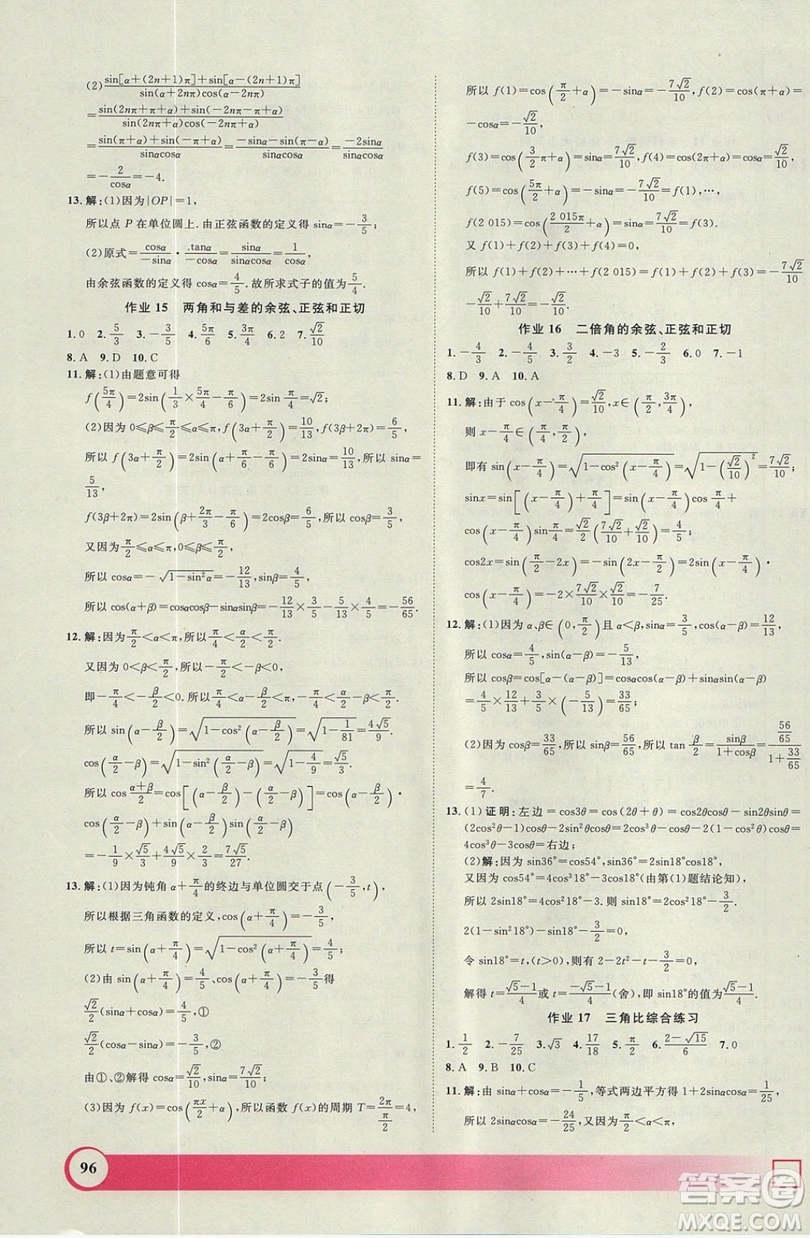 (2) $\frac{\sin[\alpha+(2n+1)\pi]+\sin[\alpha-(2n+1)\pi]}{\sin(\alpha+2n\pi)\cos(\alpha-2n\pi)}$
$=\frac{\sin(2n\pi+\pi+\alpha)+\sin(-2n\pi-\pi+\alpha)}{\sin(2n\pi+\alpha)\cos(-2n\pi+\alpha)}$
$=\frac{\sin(\pi+\alpha)+\sin(-\pi+\alpha)}{\sin\alpha\cos\alpha}=\frac{-\sin\alpha-\sin(\pi-\alpha)}{\sin\alpha\cos\alpha}=\frac{-2\sin\alpha}{\sin\alpha\cos\alpha}$
$=-\frac{2}{\cos\alpha}=-4.$
13. 解:(1)因为|OP|=1,
所以点 P 在单位圆上.由正弦函数的定义得 $\sin\alpha=-\frac{3}{5}$;
(2)原式$=\frac{\cos\alpha}{-\sin\alpha}\cdot\frac{\tan\alpha}{-\cos\alpha}=\frac{\sin\alpha}{\sin\alpha\cos\alpha}=\frac{1}{\cos\alpha}$.
由余弦函数的定义得 $\cos\alpha=\frac{4}{5}$.故所求式子的值为 $\frac{5}{4}$.
作业 15 两角和与差的余弦、正弦和正切
1. 0 2. $\frac{5}{3}$ 3. $-\frac{\sqrt{3}}{3}$ 4. $\frac{5\pi}{6}$ 5. $\frac{3\pi}{4}$ 6. 2 7. $\frac{\sqrt{2}}{10}$
8. A 9. D 10. C
11. 解:(1)由题意可得
$f\left(\frac{5\pi}{4}\right)=2\sin\left(\frac{1}{3}\times\frac{5\pi}{4}-\frac{\pi}{6}\right)=2\sin\frac{\pi}{4}=\sqrt{2}$;
(2)因为 $0\leqslant\beta\leqslant\frac{\pi}{2}\leqslant\alpha\leqslant\pi$, $f\left(3\alpha+\frac{\pi}{2}\right)=\frac{10}{13}$, $f(3\beta+2\pi)=\frac{6}{5}$,
所以 $f\left(3\alpha+\frac{\pi}{2}\right)=2\sin\left(\alpha+\frac{\pi}{6}-\frac{\pi}{6}\right)=2\sin\alpha=\frac{10}{13}$,所以 $\sin\alpha=$
$\frac{5}{13}$,
$f(3\beta+2\pi)=2\sin\left(\beta+\frac{2\pi}{3}-\frac{\pi}{6}\right)=2\cos\beta=\frac{6}{5}$,所以 $\cos\beta=\frac{3}{5}$,
又因为 $\frac{\pi}{2}\leqslant\alpha\leqslant\pi$, $0\leqslant\beta\leqslant\frac{\pi}{2}$,
所以 $\cos\alpha=-\sqrt{1-\sin^2\alpha}=-\frac{12}{13}$, $\sin\beta=\frac{4}{5}$,
所以 $\cos(\alpha+\beta)=\cos\alpha\cos\beta-\sin\alpha\sin\beta=-\frac{12}{13}\times\frac{3}{5}-\frac{5}{13}\times\frac{4}{5}=-\frac{56}{65}$.
12. 解:因为 $\frac{\pi}{2}<\alpha<\pi$,所以 $\frac{\pi}{4}<\frac{\alpha}{2}<\frac{\pi}{2}$.
又因为 $0<\beta<\frac{\pi}{2}$,所以 $-\frac{\pi}{2}<-\beta<0$,
即 $-\frac{\pi}{4}<-\frac{\beta}{2}<0$.所以 $\frac{\pi}{4}<\alpha-\frac{\beta}{2}<\pi$, $-\frac{\pi}{4}<\frac{\alpha}{2}-\beta<\frac{\pi}{2}$.
所以 $\sin\left(\alpha-\frac{\beta}{2}\right)=\sqrt{1-\cos^2\left(\alpha-\frac{\beta}{2}\right)}=\sqrt{1-\frac{1}{81}}=\frac{4\sqrt{5}}{9}$.
$\cos\left(\frac{\alpha}{2}-\beta\right)=\sqrt{1-\sin^2\left(\frac{\alpha}{2}-\beta\right)}=\sqrt{1-\frac{4}{9}}=\frac{\sqrt{5}}{3}$.
所以 $\cos\frac{\alpha+\beta}{2}=\cos\left[\left(\alpha-\frac{\beta}{2}\right)-\left(\frac{\alpha}{2}-\beta\right)\right]=$
$\cos\left(\alpha-\frac{\beta}{2}\right)\cos\left(\frac{\alpha}{2}-\beta\right)+\sin\left(\alpha-\frac{\beta}{2}\right)\sin\left(\frac{\alpha}{2}-\beta\right)$
$=-\frac{1}{9}\times\frac{\sqrt{5}}{3}+\frac{4\sqrt{5}}{9}\times\frac{2}{3}=\frac{7\sqrt{5}}{27}$.
13. 解:(1)因为钝角 $\alpha+\frac{\pi}{4}$ 的终边与单位圆交于点 $\left(-\frac{3}{5},t\right)$,
所以根据三角函数的定义, $\cos\left(\alpha+\frac{\pi}{4}\right)=-\frac{3}{5}$,
所以 $t=\sin\left(\alpha+\frac{\pi}{4}\right)=\sqrt{1-\cos^2\left(\alpha+\frac{\pi}{4}\right)}=\frac{4}{5}$;
(2)由 $\sin\left(\alpha+\frac{\pi}{4}\right)=\frac{4}{5}$, $\cos\left(\alpha+\frac{\pi}{4}\right)=-\frac{3}{5}$ 得
$\frac{\sqrt{2}}{2}(\sin\alpha+\cos\alpha)=\frac{4}{5}$,①
$\frac{\sqrt{2}}{2}(\cos\alpha-\sin\alpha)=-\frac{3}{5}$,②
由①、②解得 $\cos\alpha=\frac{\sqrt{2}}{10}$, $\sin\alpha=\frac{7\sqrt{2}}{10}$;
(3)因为 $f(x)=\cos\left(\frac{\pi x}{2}+\alpha\right)$,所以函数 $f(x)$ 的周期 $T=\frac{2\pi}{\frac{\pi}{2}}=4$,
所以 $f(1)=\cos\left(\frac{\pi}{2}+\alpha\right)=-\sin\alpha=-\frac{7\sqrt{2}}{10}$, $f(2)=\cos(\pi+\alpha)=$
$-\cos\alpha=-\frac{\sqrt{2}}{10}$,
$f(3)=\cos\left(\frac{3\pi}{2}+\alpha\right)=\sin\alpha=\frac{7\sqrt{2}}{10}$, $f(4)=\cos(2\pi+\alpha)=\frac{\sqrt{2}}{10}$,
$f(5)=\cos\left(\frac{5\pi}{2}+\alpha\right)=-\frac{7\sqrt{2}}{10}=f(1)$,…,
$f(2\,015)=\cos\left(\frac{2\,015\pi}{2}+\alpha\right)=\sin\alpha=\frac{7\sqrt{2}}{10}=f(3)$.
又 $f(1)+f(2)+f(3)+f(4)=0$,
所以 $f(1)+f(2)+\cdots+f(2\,015)=f(1)+f(2)+f(3)=-\frac{7\sqrt{2}}{10}$
$-\frac{\sqrt{2}}{10}+\frac{7\sqrt{2}}{10}=-\frac{\sqrt{2}}{10}$.
作业 16 二倍角的余弦、正弦和正切
1. $-\frac{4}{3}$ 2. $-\frac{4}{5}$ 3. $-\frac{\sqrt{5}}{3}$ 4. $-\frac{\sqrt{2}}{2}$ 5. $-\frac{4}{3}$ 6. 0 7. -1
8. D 9. A 10. A
11. 解:由于 $\cos\left(x-\frac{\pi}{4}\right)=\frac{\sqrt{2}}{10}$, $x\in\left(\frac{\pi}{2},\frac{3\pi}{4}\right)$,
则 $x-\frac{\pi}{4}\in\left(\frac{\pi}{4},\frac{\pi}{2}\right)$,
即有 $\sin\left(x-\frac{\pi}{4}\right)=\sqrt{1-\cos^2\left(x-\frac{\pi}{4}\right)}=\sqrt{1-\left(\frac{\sqrt{2}}{10}\right)^2}=\frac{7\sqrt{2}}{10}$,
$\sin x=\sin\left[\left(x-\frac{\pi}{4}\right)+\frac{\pi}{4}\right]=\sin\left(x-\frac{\pi}{4}\right)\cos\frac{\pi}{4}+$
$\cos\left(x-\frac{\pi}{4}\right)\sin\frac{\pi}{4}=\frac{\sqrt{2}}{2}\left(\frac{7\sqrt{2}}{10}+\frac{\sqrt{2}}{10}\right)=\frac{4}{5}$;
$\cos2x=\sin\left(\frac{\pi}{2}-2x\right)=-2\sin\left(x-\frac{\pi}{4}\right)\cos\left(x-\frac{\pi}{4}\right)$
$=-2\times\frac{7\sqrt{2}}{10}\times\frac{\sqrt{2}}{10}=-\frac{7}{25}$.
12. 解:(1)因为 $\alpha、\beta\in\left(0,\frac{\pi}{2}\right)$ 且 $\alpha<\beta$, $\sin\alpha=\frac{3}{5}$, $\cos(\alpha-\beta)=\frac{12}{13}$,
所以 $\cos\alpha=\frac{4}{5}$, $\sin(\alpha-\beta)=-\frac{5}{13}$,
所以 $\cos\beta=\cos[\alpha-(\alpha-\beta)]=\cos\alpha\cos(\alpha-\beta)+\sin\alpha\sin(\alpha-\beta)$
$=\frac{4}{5}\times\frac{12}{13}+\frac{3}{5}\times\left(-\frac{5}{13}\right)=\frac{33}{65}$;
(2)因为 $\cos\beta=\frac{33}{65}$,所以 $\sin\beta=\frac{56}{65}$,所以 $\tan\frac{\beta}{2}=\frac{\sin\beta}{1+\cos\beta}=\frac{\frac{56}{65}}{1+\frac{33}{65}}$
$=\frac{4}{7}$.
13. (1) 证明:左边 $=\cos3\theta=\cos(2\theta+\theta)=\cos2\theta\cos\theta-\sin2\theta\sin\theta=$
$(2\cos^2\theta-1)\cos\theta-2\sin^2\theta\cos\theta=(2\cos^2\theta-1)\cos\theta-2(1-\cos^2\theta)\cos\theta=$
$4\cos^3\theta-3\cos\theta=$右边;
(2)解:因为 $\sin36°=\cos54°$, $\sin36°=2\sin18°\cos18°$,
又因为 $\cos54°=4\cos^318°-3\cos18°$(由第(1)题结论知),
所以 $2\sin18°=4\cos^218°-3$.则 $\sin18°=2\cos^218°-\frac{3}{2}$,
$2(1-\sin^218°)-\sin18°-\frac{3}{2}=0$,
令 $\sin18°=t,(t>0)$,则 $2-2t^2-t-\frac{3}{2}=0$,
解得 $t=\frac{\sqrt{5}-1}{4}$ 或 $t=\frac{-\sqrt{5}-1}{4}$(舍),所以 $\sin18°$ 的值为 $\frac{\sqrt{5}-1}{4}$.
作业 17 三角比综合练习
1. $\frac{1}{2}$ 2. $-\frac{7}{25}$ 3. $\sqrt{3}$ 4. $\frac{17}{18}$ 5. $\frac{3}{2}$ 6. $\frac{2-\sqrt{15}}{6}$ 7. 0
8. A 9. B 10. C
11. 解:由 $\sin\alpha+\cos\alpha=-\frac{1}{5}$,等式两边平方得 $1+2\sin\alpha\cos\alpha=\frac{1}{25}$,
所以 $2\sin\alpha\cos\alpha=-\frac{24}{25}$,又因为 $\frac{\pi}{2}<\alpha<\pi$,
96
答案圈
MXQE.COM